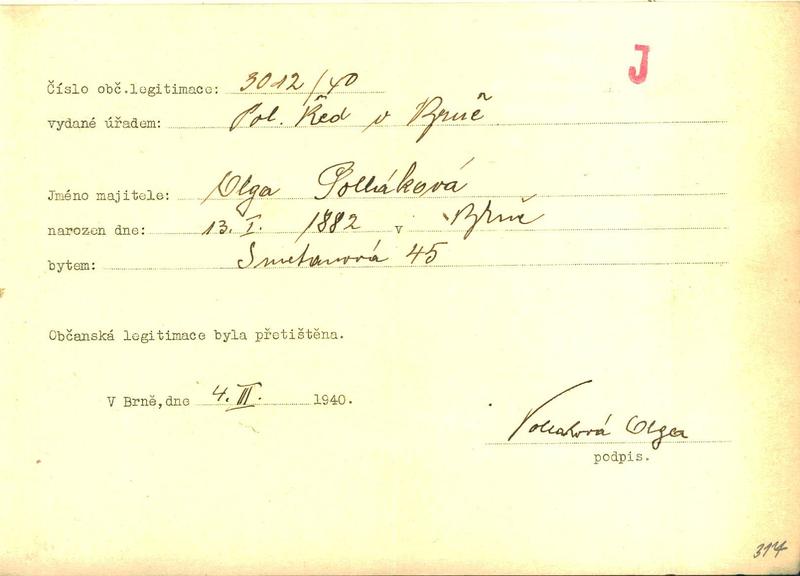 J
Číslo obč.legitimace: 3012/40
vydané úřadem: Pol. Řed v Brně
Jméno majitele: Olga Polláková
narozen dne: 13. I. 1882 v Brně
bytem: Smetanová 45
Občanská legitimace byla přetištěna.
V Brně,dne 4. III. 1940.
Polláková Olga
podpis.
314